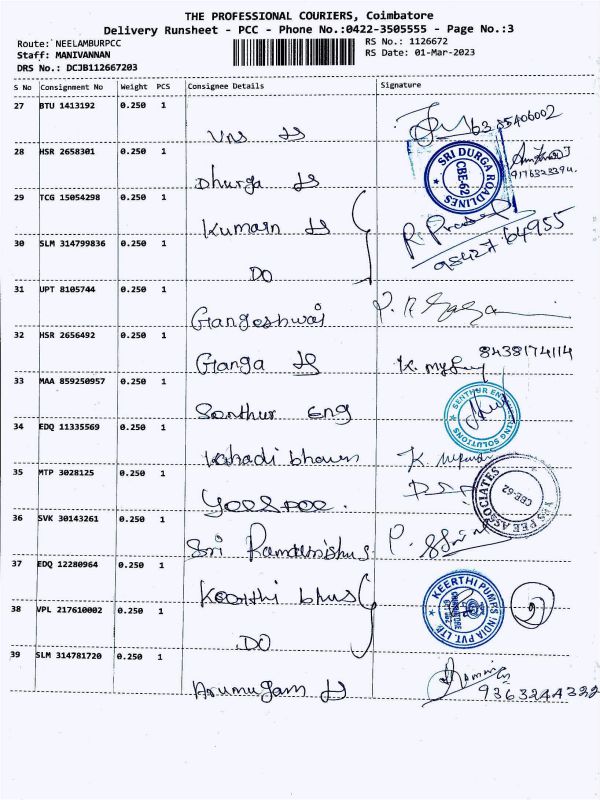 THE PROFESSIONAL COURIERS, Coimbatore
Delivery Runsheet - PCC - Phone No.:0422-3505555 - Page No.:3
Route: NEELAMBURPCC
Staff: MANIVANNAN
DRS No.: DCJB112667203
RS No.: 1126672
RS Date: 01-Mar-2023
S No Consignment No Weight PCS Consignee Details Signature
27 BTU 1413192 0.250 1
6385406002
28 HSR 2658301 0.250 1
Dhurga
SRI DURGA ROADLINES
CBE-62
29 TCG 15054298 0.250 1
Kumaan
30 SLM 314799836 0.250 1
DO
98427 64955
31 UPT 8105744 0.250 1
Gangeshwar
32 HSR 2656492 0.250 1
Ganga
8438174114
33 MAA 859250957 0.250 1
Santhur Eng
SENTHUR ENGINEERING SOLUTIONS
34 EDQ 11335569 0.250 1
35 MTP 3028125 0.250 1
YES PEE ASSOCIATES
CBE-62
36 SVK 30143261 0.250 1
Sri
37 EDQ 12280964 0.250 1
Keerthi
KEERTHI PUMPS INDIA PVT. LTD.
38 VPL 217610002 0.250 1
DO
39 SLM 314781720 0.250 1
Arumugam
9363244322